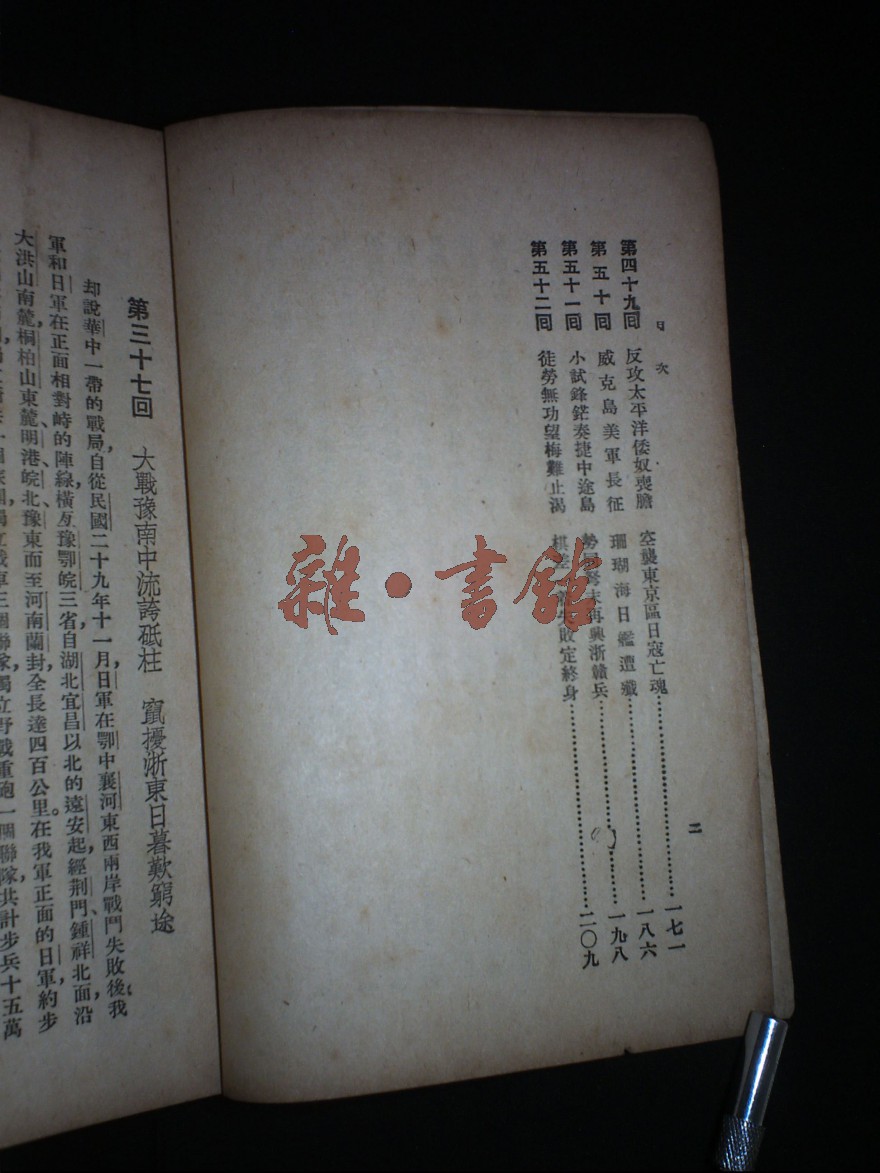 目次
第四十九回 反攻太平洋倭奴喪膽 空襲東京區日寇亡魂 一七一
第五十回 威克島美軍長征 珊瑚海日艦遭殲 一八六
第五十一回 小試鋒鋩奏捷中途島 再興浙贛兵 一九八
第五十二回 徒勞無功望梅難止渴 敗定終身 二〇九
二
雜·書館
第三十七回 大戰豫南中流誇砥柱 竄擾浙東日暮歎窮途
却說華中一帶的戰局,自從民國二十九年十一月,日軍在鄂中襄河東西兩岸戰鬥失敗後,我
軍和日軍在正面相對峙的陣線,橫亙豫鄂皖三省,自湖北宜昌以北的遠安起,經荆門、鍾祥北面,沿
大洪山南麓,桐柏山東麓、明港、皖北豫東而至河南蘭封,全長達四百公里。在我軍正面的日軍,約步
獨立野戰重砲一個聯隊,共計步兵十五萬